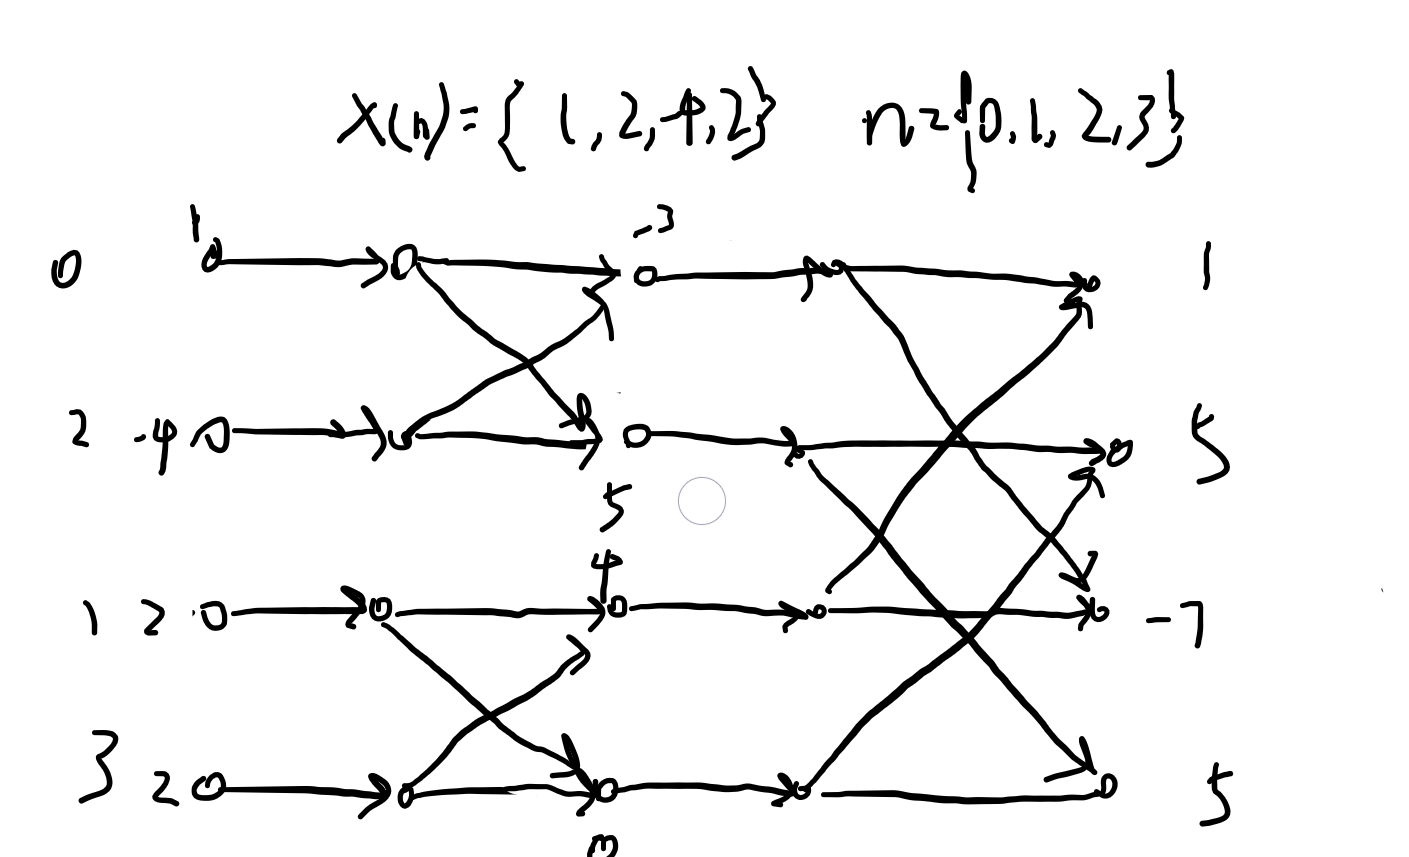 X(n)={ 1, 2, -4, 2} n={0, 1, 2, 3}
1 -3
0 1
2 -4 5
5
4
1 2 -7
3 2 5
0